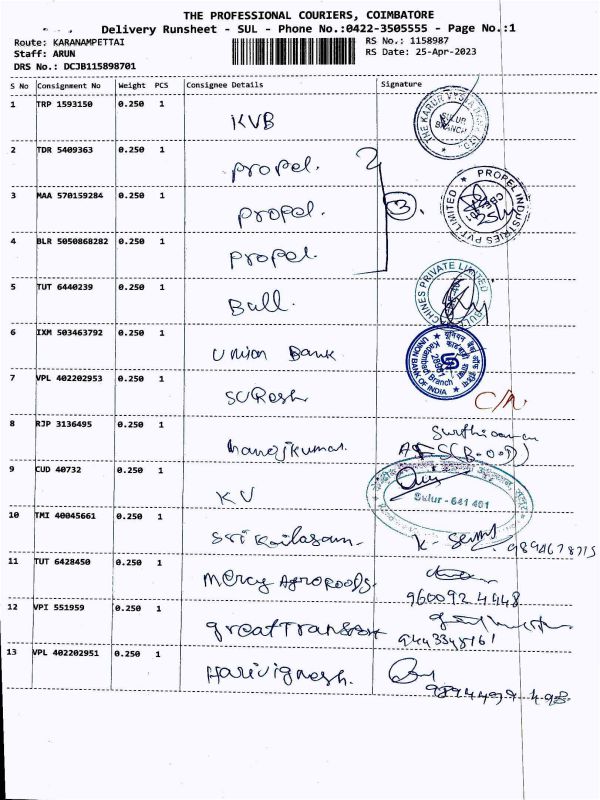 THE PROFESSIONAL COURIERS, COIMBATORE
Delivery Runsheet - SUL - Phone No.:0422-3505555 - Page No.:1
Route: KARANAMPETTAI RS No.: 1158987
Staff: ARUN RS Date: 25-Apr-2023
DRS No.: DCJB115898701
S No Consignment No Weight PCS Consignee Details Signature
1 TRP 1593150 0.250 1 KVB THE KARUR VYSYA BANK LTD. SULUR BRANCH
2 TDR 5409363 0.250 1 propel.
3 MAA 570159284 0.250 1 propel. 3. PROPEL INDUSTRIES PVT LIMITED
4 BLR 5050868282 0.250 1 propel.
5 TUT 6440239 0.250 1 Bull. BULL MACHINES PRIVATE LIMITED
6 IXM 503463792 0.250 1 Union Bank UNION BANK OF INDIA Kadambadi Branch
7 VPL 402202953 0.250 1 SUResh
8 RJP 3136495 0.250 1 manojkumar.
9 CUD 40732 0.250 1 KV Sulur - 641 401
10 TMI 40045661 0.250 1 Sri Kailasam. 9894678715
11 TUT 6428450 0.250 1 Mercy Agrofoods. 9600924448
12 VPI 551959 0.250 1 greatTransport
13 VPL 402202951 0.250 1 Harivignesh.